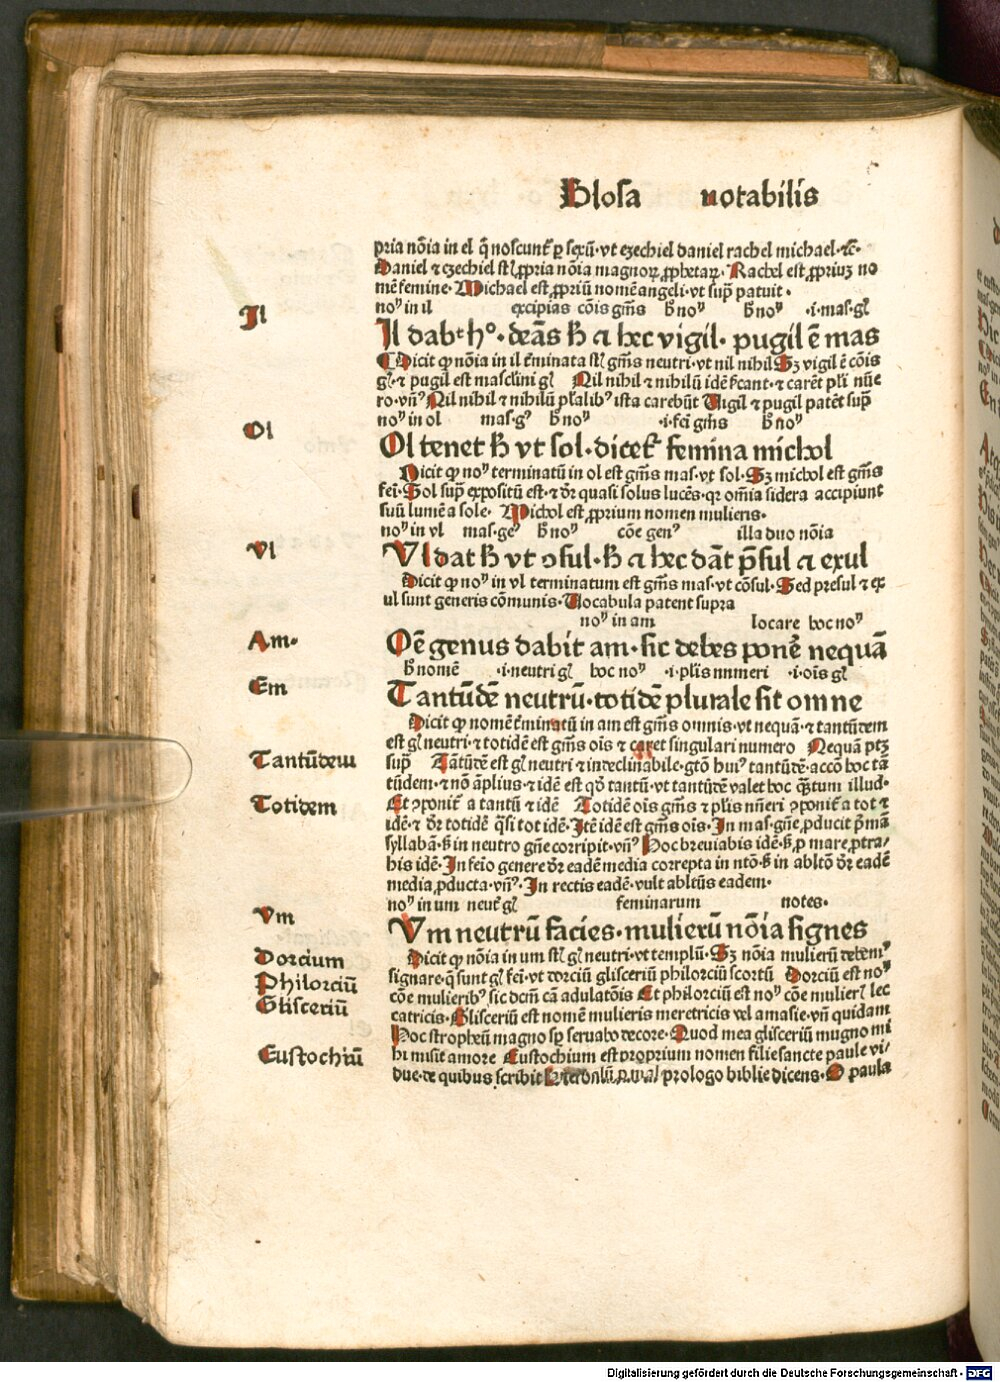 Glosa notabilis
pria nōia in el q̄ noscunt᷑ ꝑ sexū·vt ezechiel daniel rachel michael·⁊c̄·
Daniel ⁊ ezechiel sūt ꝓpria nōia magnoꝝ ꝓphetaꝝ· Rachel est ꝓpriuꝫ no
mē femine· Michael est ꝓpriū nomē angeli·vt sup̄ patuit·
noꝰ in il excipias cōis gn̄is h̄ noꝰ h̄ noꝰ ·i·mas·gl̄
Il
Il dabit hᵒ·deās h̄ ⁊ hec vigil· pugil ē mas
Dicit ꝙ nōia in il t̄minata sūt gn̄is neutri·vt nil nihil Sꝫ vigil ē cōis
gl̄·⁊ pugil est masclini gl̄ Nil nihil ⁊ nihilū idē
ro·vn̄ Nil nihil ⁊ nihilū pl̄alibꝰ ista carebūt Uigil ⁊ pugil patēt sup̄
noꝰ in ol mas·gꝰ h̄ noꝰ ·i·fei gn̄is h̄ noꝰ
Ol
Ol tenet h̄ vt sol·dicet᷑ femina michol
Dicit ꝙ noꝰ terminatū in ol est gn̄is mas·vt sol·Sꝫ michol est gn̄is
fei·Sol sup̄ expositū est·⁊ dr̄ quasi solus lucēs·qr omīa sidera accipiunt
suū lumē a sole· Michol est ꝓprium nomen mulieris·
noꝰ in vl mas·geꝰ h̄ noꝰ cōe genꝰ illa duo nōia
Vl
Vl dat h̄ vt ꝯsul·h̄ ⁊ hec dāt p̄sul ⁊ exul
Dicit ꝙ noꝰ in vl terminatum est gn̄is mas·vt cōsul·Sed presul ⁊ ex
ul sunt generis cōmunis·Uocabula patent supra
noꝰ in am locare hoc noꝰ
Am·
Oē genus dabit am·sic debes ponē nequā
h̄ nomē ·i·neutri gl̄ hoc noꝰ ·i·plīs numeri ·i·oīs gl̄
Em
Tantūdē neutrū·totidē plurale sit omne
Dicit ꝙ nomē t̄minatū in am est gn̄is omnis·vt nequā·⁊ tantūdem
est gl̄ neutri·⁊ totidē est gn̄is oīs ⁊ caret singulari numero Nequā ptꝫ
Tantūdem
sup̄ Tātūdē est gl̄ neutri ⁊ indeclinabile·gtō huiꝰ tantūdē·accō hoc tā
tūdem·⁊ nō āplius·⁊ idē est qđ tantū·vt tantūdē valet hoc q̄ntum illud·
Totidem
Et ꝯponit᷑ a tantū ⁊ idē Totidē oīs gn̄is ⁊ plīs nūeri ꝯponit᷑ a tot ⁊
idē·⁊ dr̄ totidē q̄si tot idē·Itē idē est gn̄is oīs·In mas·gn̄e ꝓducit p̄mā
syllabā·s̄ in neutro gn̄e corripit·vn̄ Hoc breuiabis idē·s̄ ꝓ mare ꝓtra
his idē·In feīo genere dr̄ eadē media correpta in ntō·s̄ in abltō dr̄ eadē
media ꝓducta·vn̄· In rectis eadē·vult abltūs eadem·
noꝰ in um neut᷑ gl̄ feminarum notes·
Vm
Vm neutrū facies·mulierū nōia signes
Dorcium
Dicit ꝙ nōia in um sūt gl̄ neutri·vt templū·Sꝫ nōia mulierū debemꝰ
Philorciū
signare·q̄ sunt gl̄ fei·vt dorciū gliscieriū philorciū scortū Dorciū est noꝰ
Glisceriū
cōe mulieribꝰ sic dcm̄ cā adulatōis Et philorciū est noꝰ cōe mulier᷑ lec
catricis·Glisceriū est nomē mulieris meretricis vel amasie·vn̄ quidam
Hoc stropheū magno sp̄ seruabo decore·Quod mea glisceriū mugno mi
Eustochiū
hi misit amore Eustochium est proprium nomen filie sancte paule vi
due·de quibus scribit prologo biblie dicens·O paula